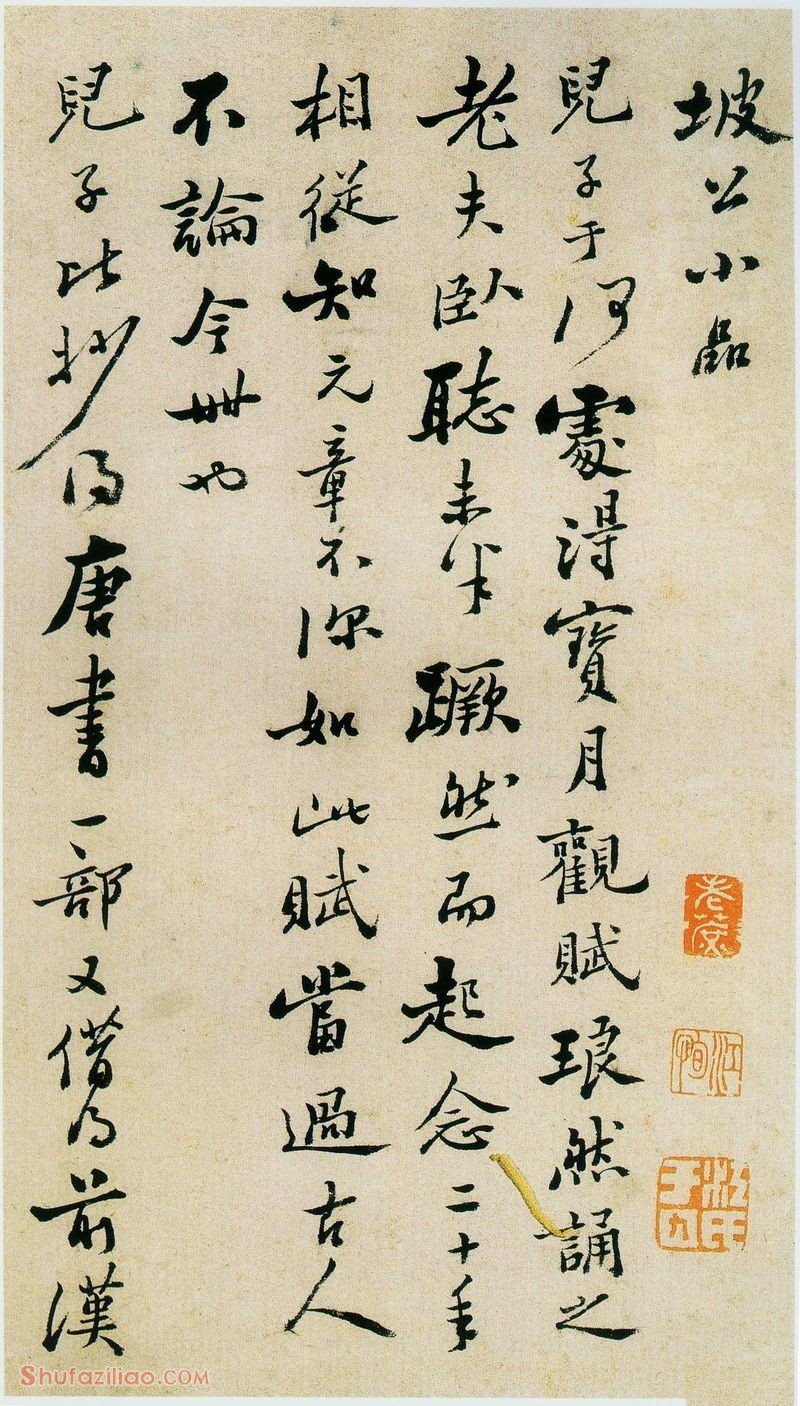 坡公小品
兒子于何處得寶月觀賦琅然誦之
老夫臥聽未半蹶然而起念二十年
相從知元章不深如此賦當過古人
不論今世也
兒子比抄得唐書一部又借得前漢
Shufaziliao.COM